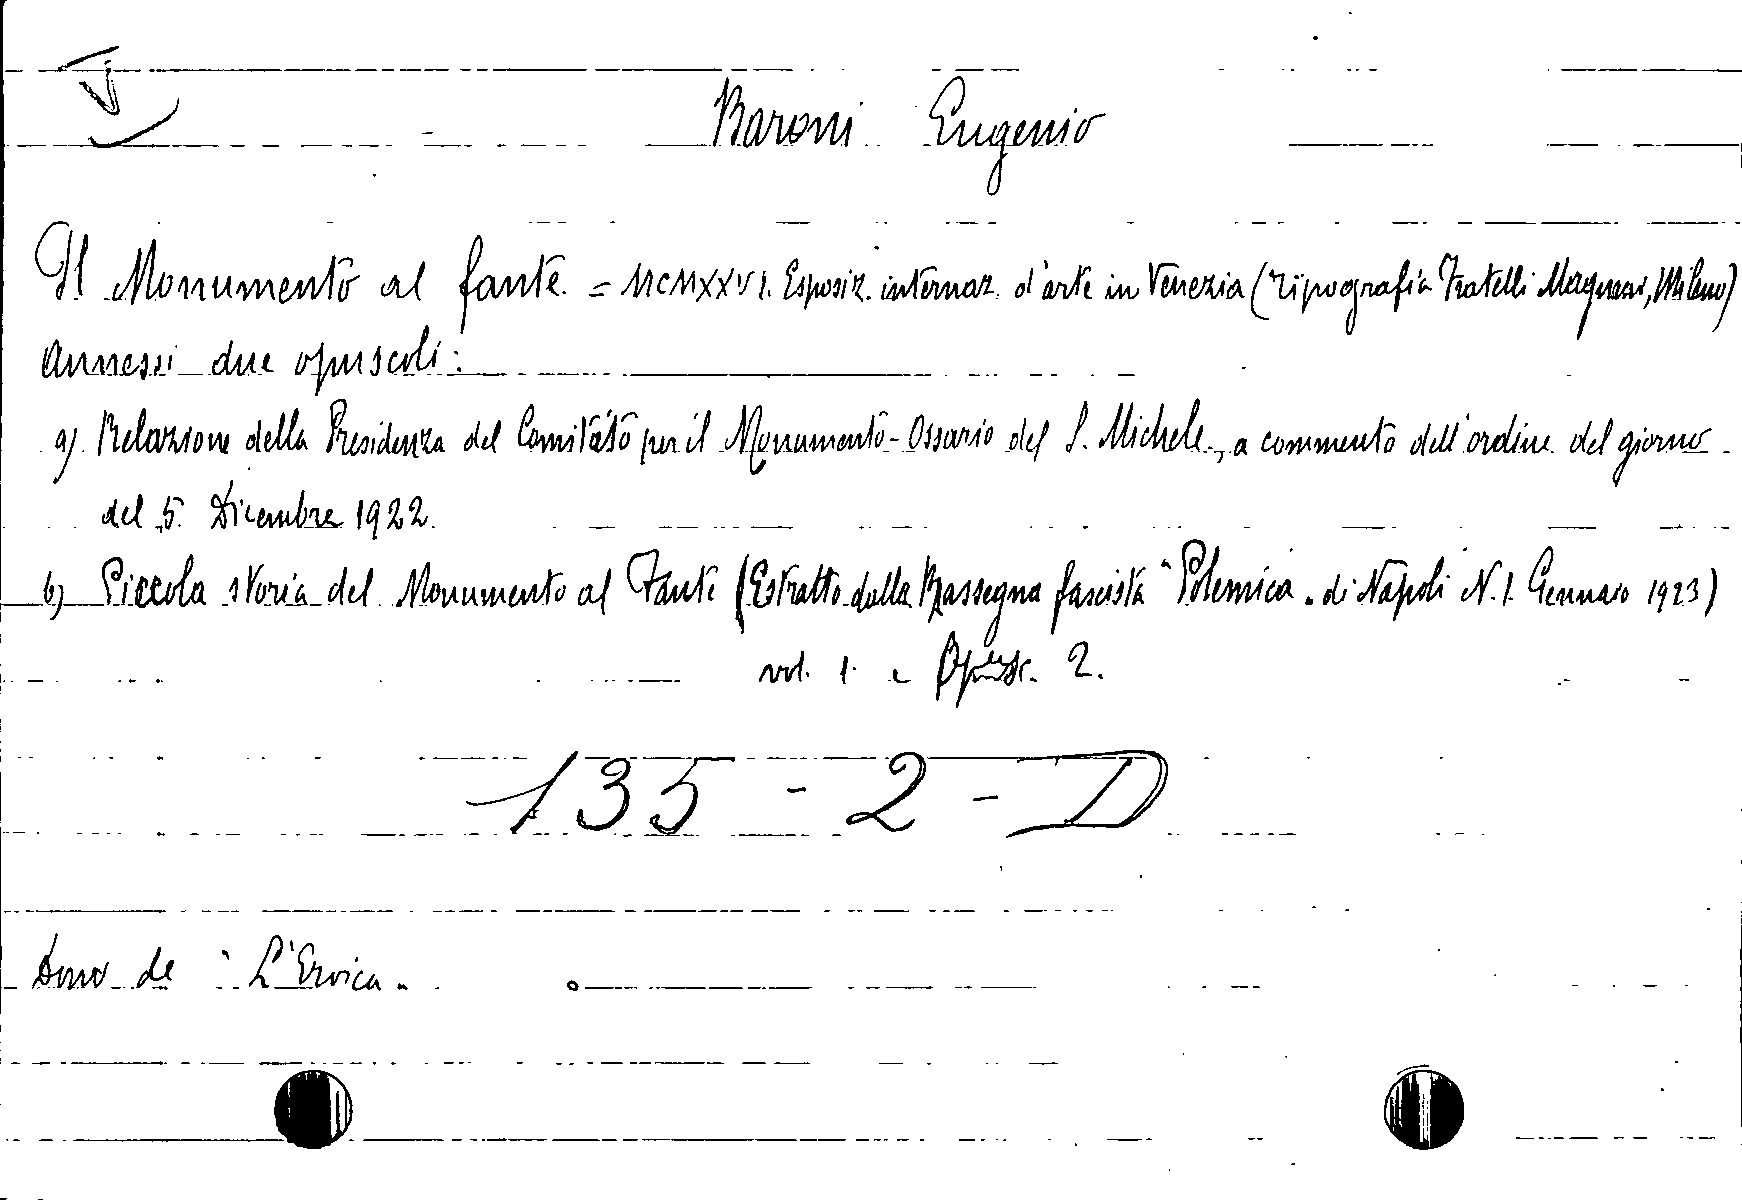 Baroni Eugenio
Il Monumento al fante. = MCMXXVI. Esposiz. internaz. d'arte in Venezia (Tipografia Fratelli Magnani, Milano)
Annessi due opuscoli:
a) Relazione della Presidenza del Comitato per il Monumento-Ossario del S. Michele, a commento dell'ordine del giorno
del 5 Dicembre 1922.
b) Piccola storia del Monumento al Fante (Estratto dalla Rassegna fascista "Polemica" di Napoli N. 1. Gennaio 1923)
vol. 1. e Opusc. 2.
135 - 2 - D
Dono de "L'Eroica"